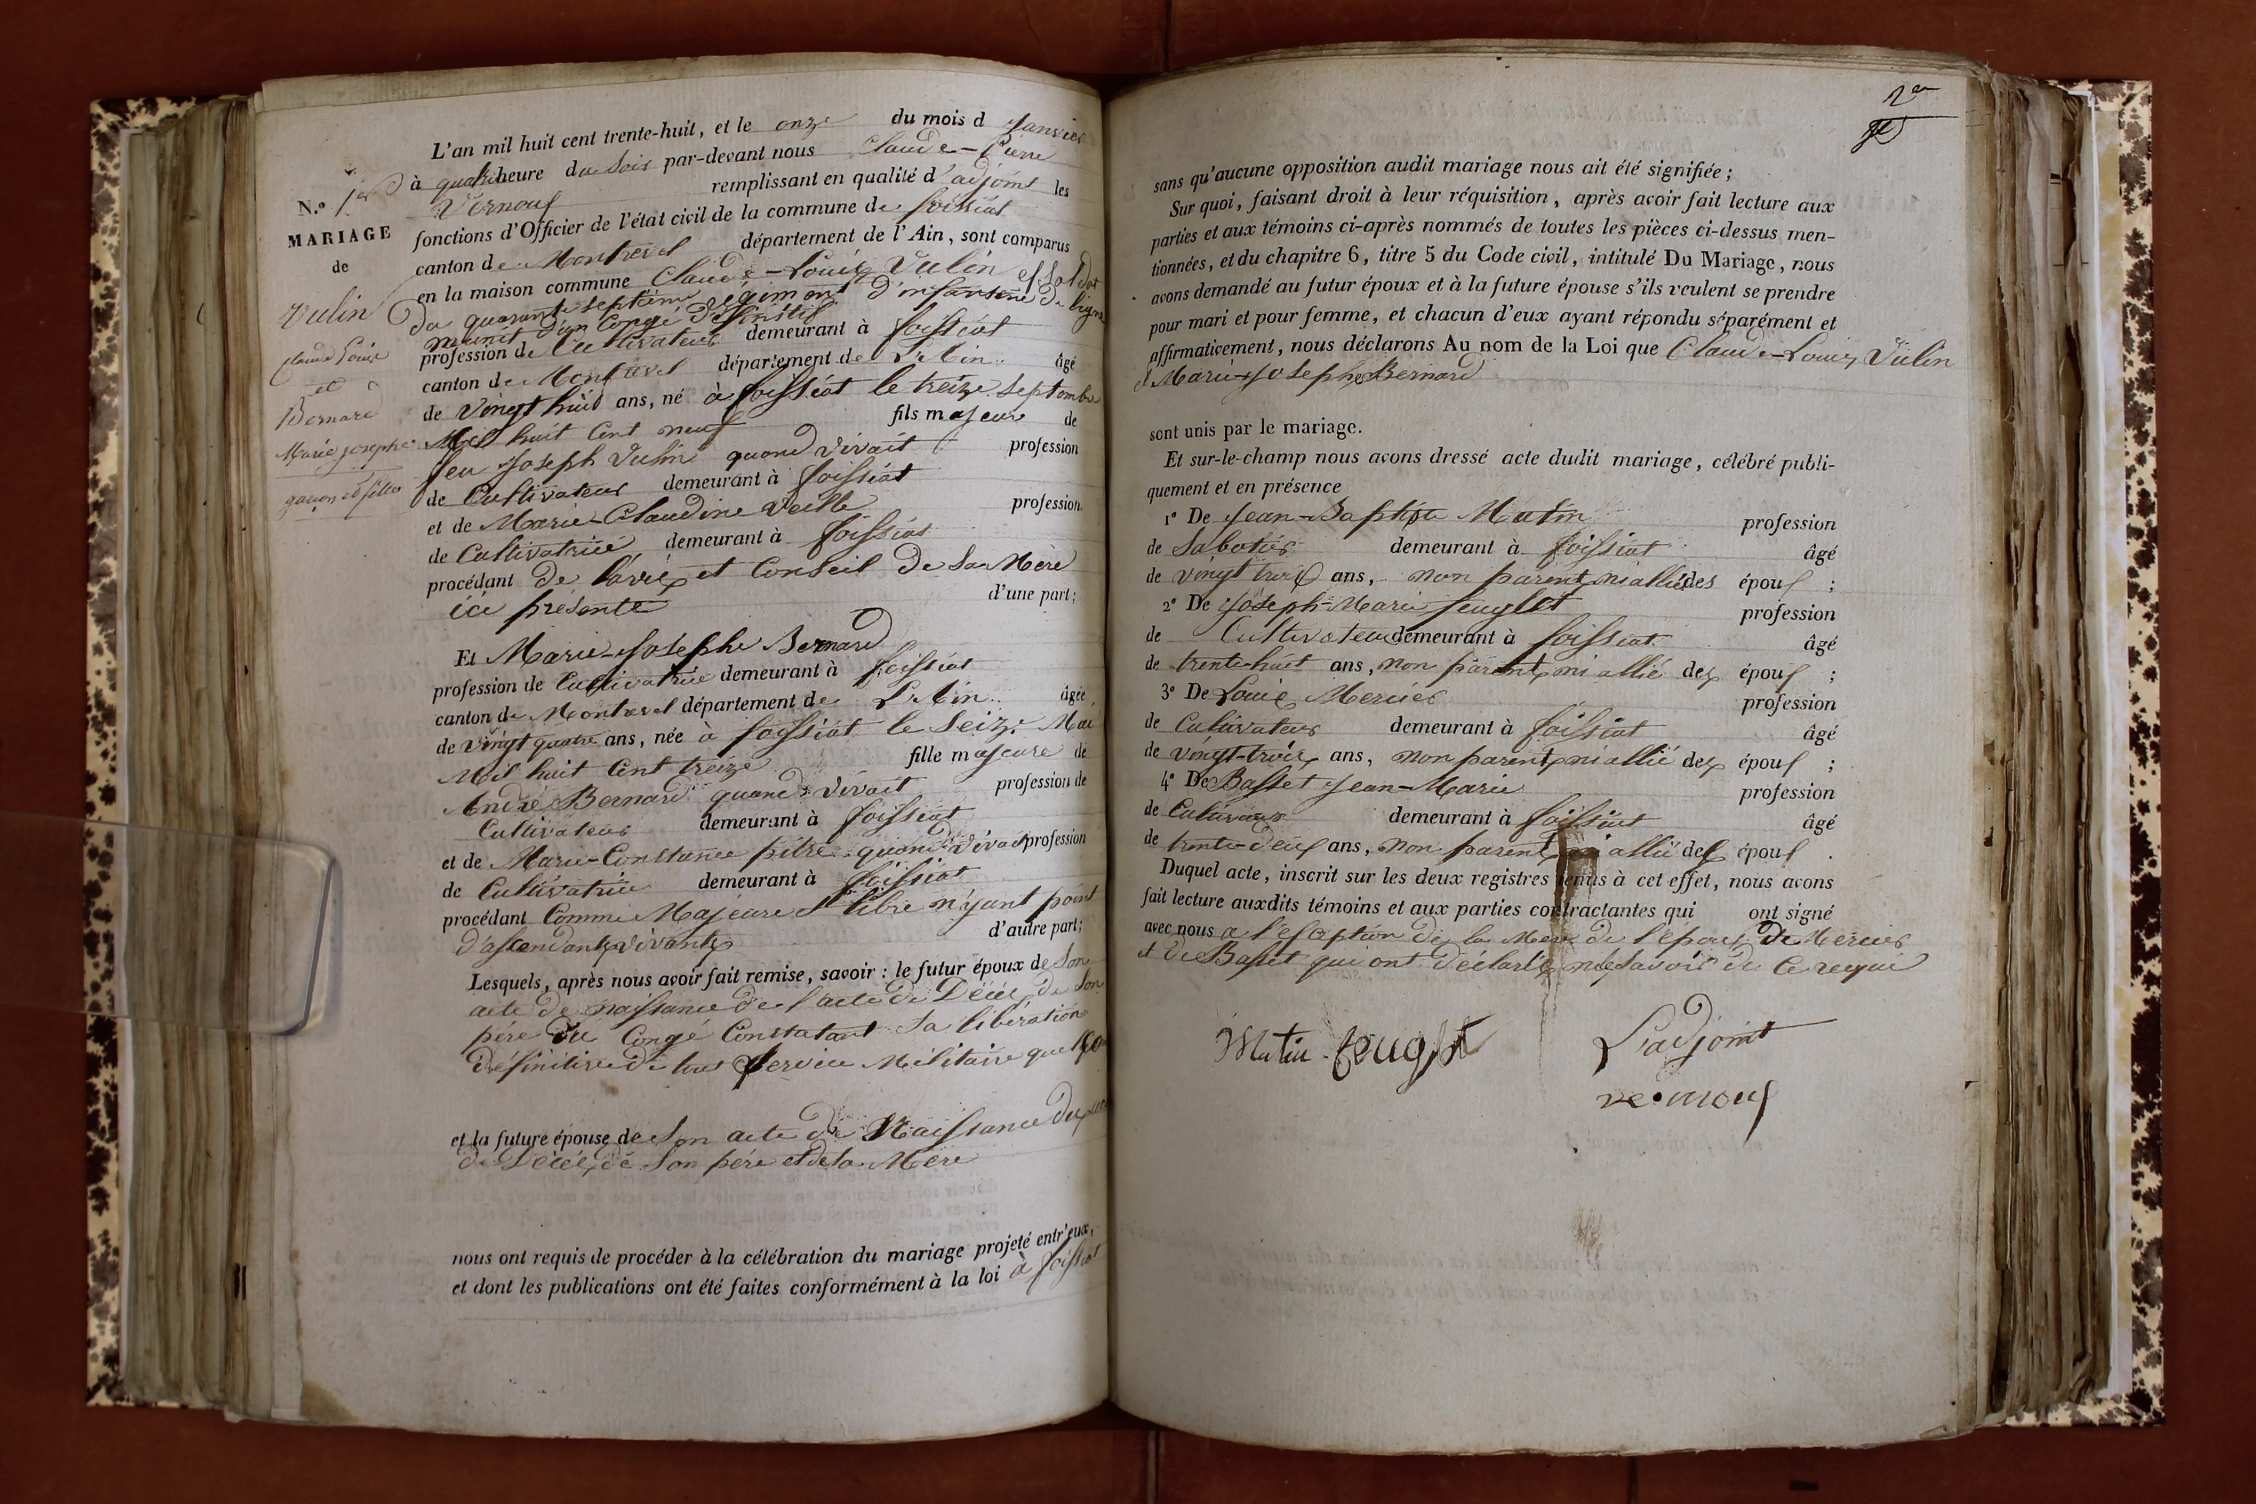 L'an mil huit cent trente-huit, et le onze du mois d janvier
à quatre heure du Soir par-devant nous Claude-Pierre
Vernouf remplissant en qualité d'adjoint les
fonctions d'Officier de l'état civil de la commune de foissiat
canton de Montrevel département de l'Ain, sont comparus
en la maison commune Claude-Louis Vulin ex Soldat
du quarante septième régiment d'infanterie de ligne
munit d'un Congé définitif
profession de Cultivateur demeurant à foissiat
canton de Montrevel département de L'Ain âgé
de vingt huit ans, né à foissiat le treize Septembre
Mil huit Cent neuf fils majeur de
feu Joseph Vulin quand vivait profession
de Cultivateur demeurant à foissiat
et de Marie-Claudine Veille profession
de Cultivatrice demeurant à foissiat
procédant de l'avis et Conseil de Sa Mère
ici présente d'une part;
N.º 1er
MARIAGE
de
Vulin
Claude Louis
et
Bernard
Marie josephe
garçon et fille
Et Marie-Josephe Bernard
profession de Cultivatrice demeurant à foissiat
canton de Montrevel département de L'Ain âgée
de vingt quatre ans, née à foissiat le Seize Mai
Mil huit Cent treize fille majeure de
André Bernard quand vivait profession de
Cultivateur demeurant à foissiat
et de Marie-Constance pitre quand vivait profession
de Cultivatrice demeurant à foissiat
procédant Comme Majeure et libre n'ayant point
d'assendants vivants d'autre part;
Lesquels, après nous avoir fait remise, savoir: le futur époux de Son
acte de naissance de l'acte de Décès de Son
père du Congé Constatant Sa libération
définitive de tout Service Militaire
et la future épouse de Son acte de Naissance
de Décès de Son père et de Sa Mère
nous ont requis de procéder à la célébration du mariage projeté entr'eux,
et dont les publications ont été faites conformément à la loi à foissiat
2e
sans qu'aucune opposition audit mariage nous ait été signifiée;
Sur quoi, faisant droit à leur réquisition, après avoir fait lecture aux
parties et aux témoins ci-après nommés de toutes les pièces ci-dessus men-
tionnées, et du chapitre 6, titre 5 du Code civil, intitulé Du Mariage, nous
avons demandé au futur époux et à la future épouse s'ils veulent se prendre
pour mari et pour femme, et chacun d'eux ayant répondu séparément et
affirmativement, nous déclarons Au nom de la Loi que Claude-Louis Vulin
et Marie-Josephe Bernard
sont unis par le mariage.
Et sur-le-champ nous avons dressé acte dudit mariage, célébré publi-
quement et en présence
1º De Jean-Baptiste Mutin profession
de Sabotier demeurant à foissiat âgé
de vingt trois ans, non parent ni allié des époux;
2º De Joseph-Marie feuglet profession
de Cultivateur demeurant à foissiat âgé
de trente-huit ans, non parent ni allié des époux;
3º De Louis Mercier profession
de Cultivateur demeurant à foissiat âgé
de vingt-trois ans, non parent ni allié des époux;
4º De Basset Jean-Marie profession
de Cultivateur demeurant à foissiat âgé
de trente-deux ans, non parent ni allié des époux.
Duquel acte, inscrit sur les deux registres tenus à cet effet, nous avons
fait lecture auxdits témoins et aux parties contractantes qui ont signé
avec nous a l'esception de la Mère de l'époux De Mercier
et de Basset qui ont déclarés ne savoir de ce requis
Mutin feuglet L'adjoint
vernouf